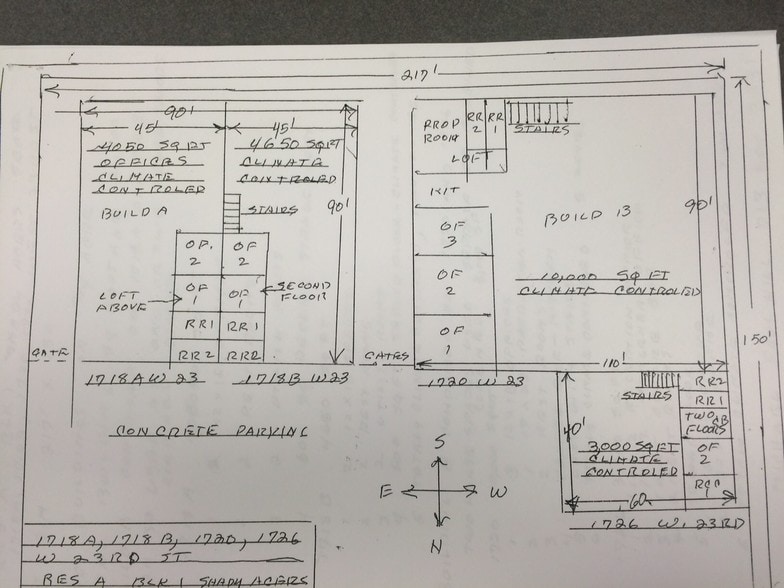 217'
90'
45'
45'
4050 SQ FT
OFFICES
CLIMATE
CONTROLED
BUILD A
4650 SQ FT
CLIMATE
CONTROLED
90'
STAIRS
OF.
2
OF
2
OF
1
OF
1
LOFT
ABOVE
SECOND
FLOOR
RR1
RR1
RR2
RR2
GATE
1718A W 23
1718B W 23
GATES
CONCRETE PARKING
PROP
ROOM
RR
2
RR
1
LOFT
STAIRS
KIT
OF
3
OF
2
OF
1
BUILD B
90'
10,000 SQ FT
CLIMATE CONTROLED
110'
1720 W 23
150'
STAIRS
RR2
RR1
TWO
FLOORS
OF
2
40'
3,000 SQ FT
CLIMATE
CONTROLED
60
1726 W. 23RD
S
E W
N
1718A, 1718B, 1720, 1726
W 23RD ST
RES A BLK 1 SHADY ACERS